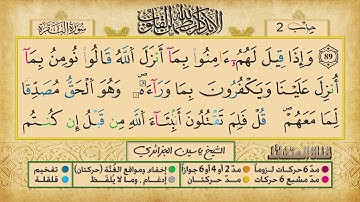 حزب 2
ألا بذكر الله تطمئن القلوب
سورة البقرة
89 وَإِذَا قِيلَ لَهُمُۥٓ ءَامِنُوا۟ بِمَآ أَنزَلَ ٱللَّهُ قَالُوا۟ نُومِنُ بِمَآ
أُنزِلَ عَلَيْنَا وَيَكْفُرُونَ بِمَا وَرَآءَهُۥ وَهُوَ ٱلْحَقُّ مُصَدِّقًا
لِّمَا مَعَهُمْ قُلْ فَلِمَ تَقْتُلُونَ أَنۢبِئَآءَ ٱللَّهِ مِن قَبْلُ إِن كُنتُم
الشيخ ياسين الجزائري
مدّ 6 حركات لزوماً مدّ 2 أو 4 أو 6 جوازاً إخفاء، ومواقع الغُنَّة (حركتان) تفخيم
مدّ مشبع 6 حركات مدّ حركتان إدغام، وما لا يُلفَظ قلقلة